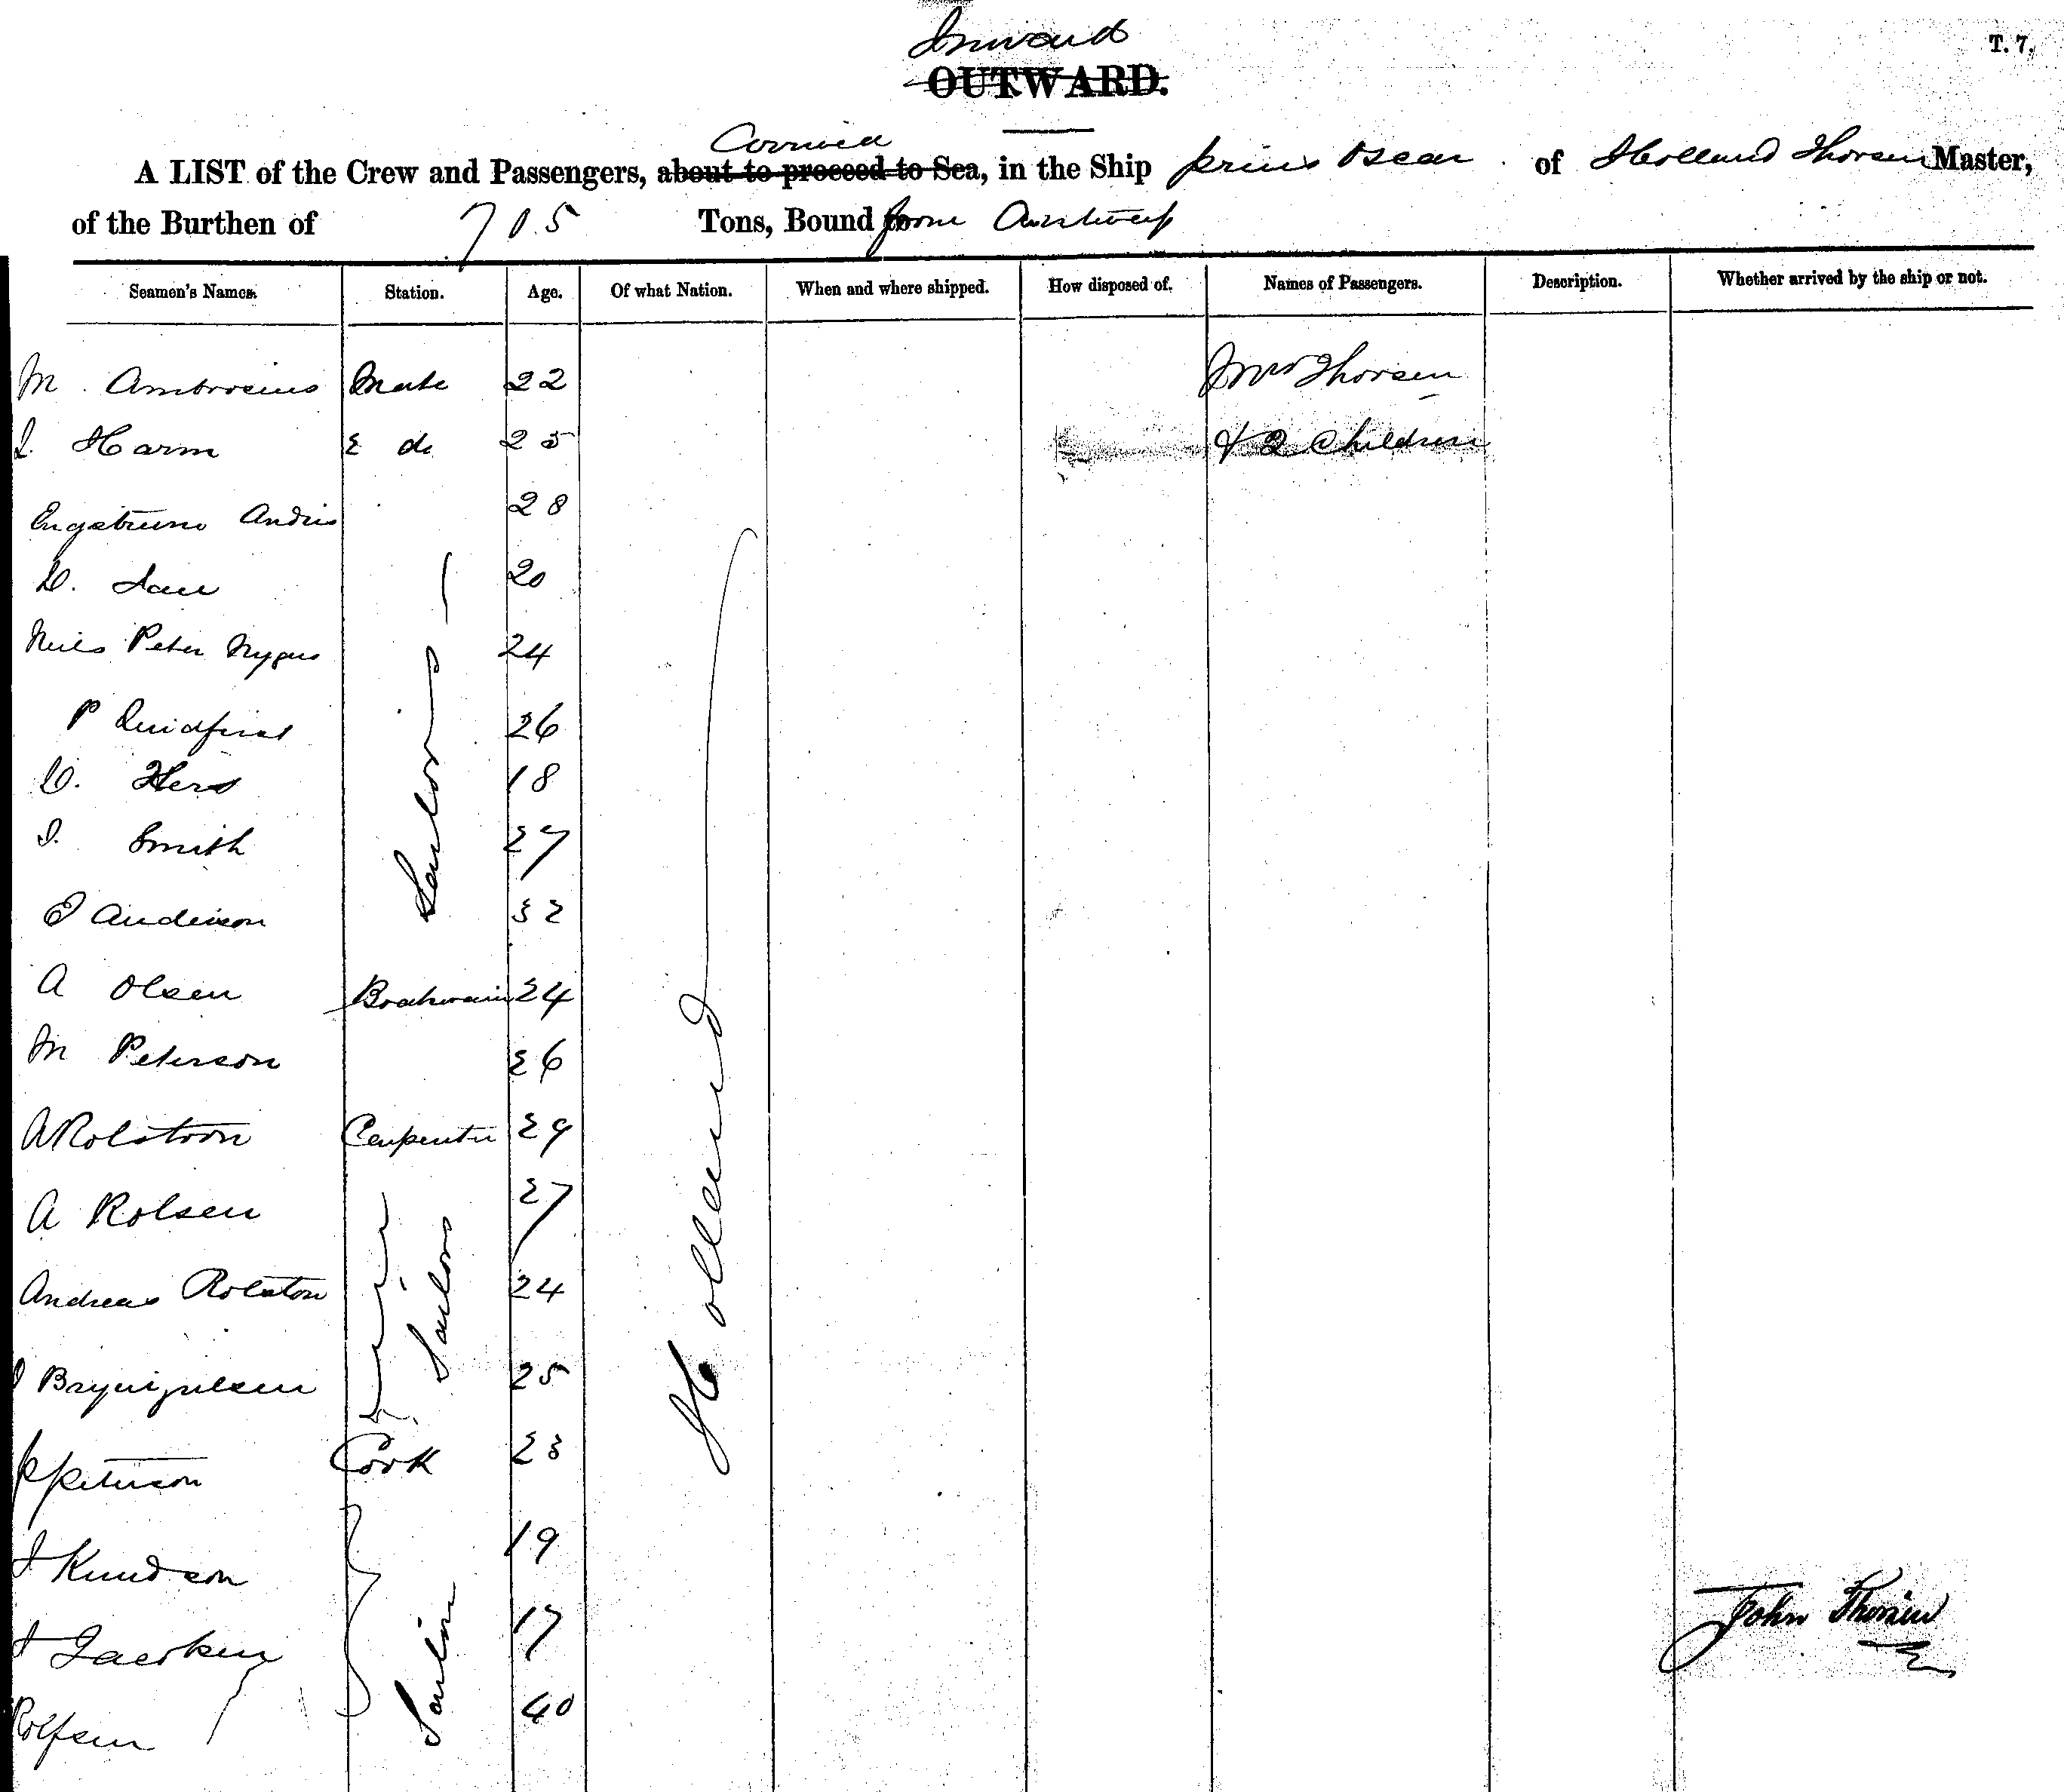 Inward
OUTWARD.
T. 7.
Arrived
A LIST of the Crew and Passengers, about to proceed to Sea, in the Ship Prins Oscar of Holland Thorsen Master,
of the Burthen of 705 Tons, Bound from Antwerp
Seamen's Names. Station. Age. Of what Nation. When and where shipped. How disposed of. Names of Passengers. Description. Whether arrived by the ship or not.
M. Ambrosius Mate 22 Mrs Thorsen
I. Harm 2 do 25 & 2 Children
Engstrum Andris 28
D. Lau 20
Neils Peter Nygus 24
P 26
D. Hers 18
I. Smith 27
Sailors
P Anderson 32
A Olsen Boatswain 24
M Peterson 26
A Rolstoon Carpenter 29
A Rolsen 27
Andreas Rolston 24
Sailors
Holland
25
P Peterson Cook 23
I Knudson 19
I 17
John Thorsen
Sailor
Rolfsen 40